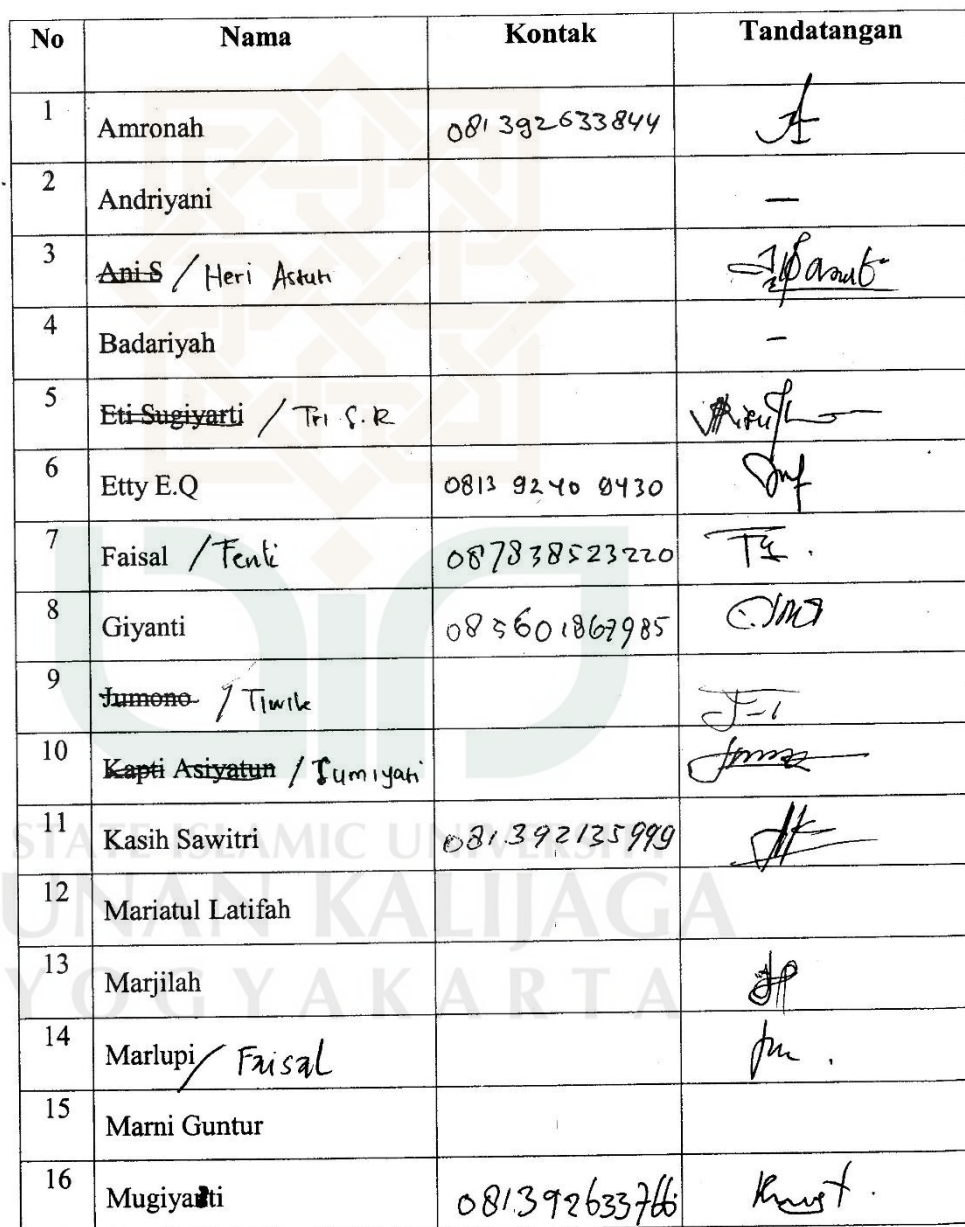 No Nama Kontak Tandatangan
1 Amronah 081392633844
2 Andriyani –
3 Ani S / Heri Astuti
4 Badariyah –
5 Eti Sugiyarti / Tri S.R
6 Etty E.Q 0813 9240 9430
7 Faisal / Fenti 087838523220
8 Giyanti 085601867985
9 Jumono / Tiwik
10 Kapti Asiyatun / Jumiyati
11 Kasih Sawitri 081392135999
12 Mariatul Latifah
13 Marjilah
14 Marlupi / Faisal
15 Marni Guntur
16 Mugiyanti 081392633766
STATE ISLAMIC UNIVERSITY
SUNAN KALIJAGA
YOGYAKARTA